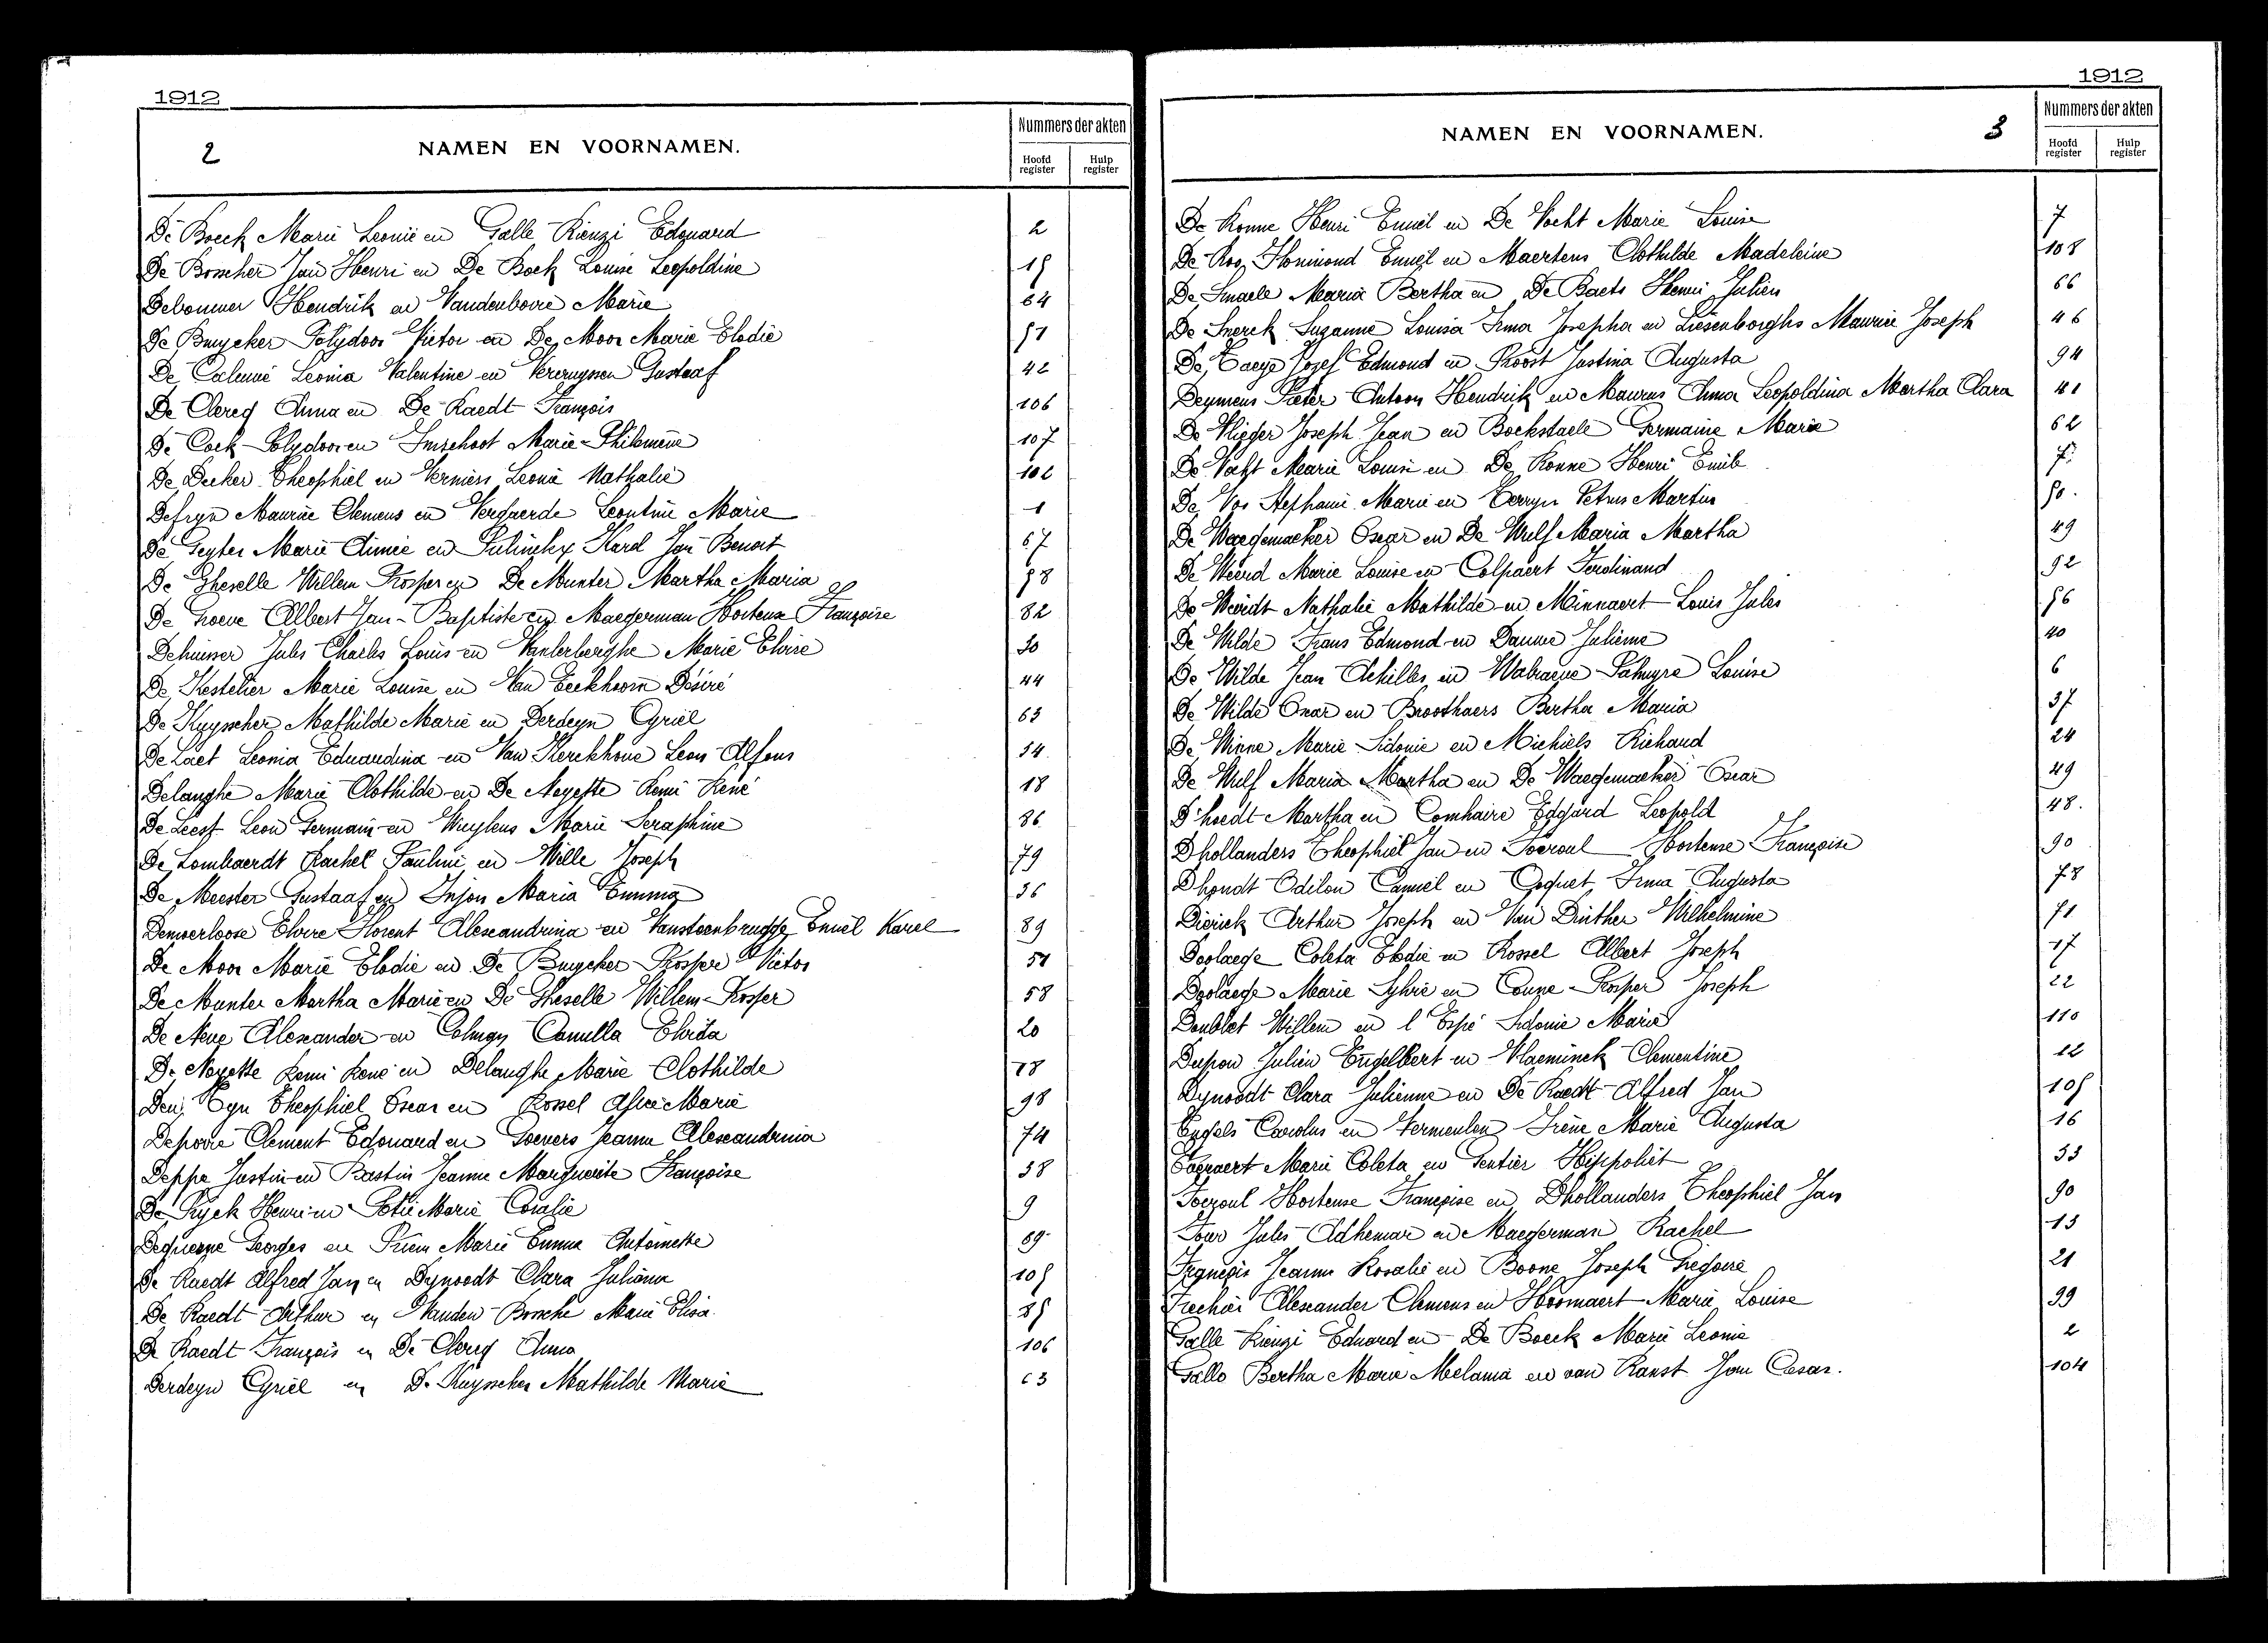 1912
2 NAMEN EN VOORNAMEN. Nummers der akten
Hoofd register Hulp register
De Boeck Marie Leonie en Galle Rienzi Edouard 2
De Boscher Jan Henri en De Bock Louise Leopoldine 15
Debouwer Hendrik en Vandenbovre Marie 64
De Bruycker Polydoor Victor en De Moor Marie Elodie 51
De Caluwé Leonia Valentine en Vereruyssen Gustaaf 42
De Clercq Anna en De Raedt François 106
De Cock Polydoor en Imschoot Marie Philomène 107
De Decker Theophiel en Vermeirs Leonie Nathalie 102
Defryn Maurice Clemens en Vergaerde Leontine Marie 1
De Geyter Marie Aimée en Pulinckx Karel Jan Benoit 67
De Gheselle Willem Prosper en De Munter Martha Maria 58
De Groeve Albert Jan-Baptiste en Maegerman Hortense Françoise 82
Dehuisser Jules Charles Louis en Vanlerberghe Marie Eloise 30
De Kestelier Marie Louise en Van Eeckhoorn Désiré 44
De Kuysscher Mathilde Marie en Derdeyn Cyriel 63
De Laet Leonia Eduardina en Van Kerckhove Leon Alfons 54
Delanghe Marie Clothilde en De Neyette Remi René 18
De Leest Leon Germain en Wuyleus Marie Seraphine 86
De Lombaerdt Rachel Pauline en Wille Joseph 79
De Meester Gustaaf en Injon Maria Emma 36
Demoerloose Elvire Florent Alexandrina en Vansteenbrugge Emiel Karel 89
De Moor Marie Elodie en De Bruycker Prosper Victor 51
De Munter Martha Marie en De Gheselle Willem Prosper 58
De Neve Alexander en Colman Camilla Elvida 20
De Neyette Remi René en Delanghe Marie Clothilde 18
Den Tyn Theophiel Oscar en Rossel Marie 98
Depovre Clement Edouard en Goevers Jeanne Alexandrina 74
Deppe Justin en Bastin Jeanne Marguerite Françoise 38
De Pryck Henri en Potié Marie Coralie 9
Dequenne Georges en Priem Marie Emma Antoinette 69
De Raedt Alfred Jan en Dynoodt Clara Juliana 105
De Raedt Arthur en Vanden Bossche Marie Elisa 85
De Raedt François en De Clercq Anna 106
Derdeyn Cyriel en De Kuysscher Mathilde Marie 63
1912
NAMEN EN VOORNAMEN. 3 Nummers der akten
Hoofd register Hulp register
De Ronne Henri Emiel en De Vocht Marie Louise 7
De Roo Florimond Emiel en Maertens Clothilde Madeleine 108
De Smaele Maria Bertha en De Baets Henri Julien 66
De Snerck Suzanne Louisa Irma Josepha en Liesenborghs Maurice Joseph 46
De Taeye Jozef Edmond en Proost Justina Augusta 94
Deymens Pieter Antoon Hendrik en Maurus Anna Leopoldina Martha Clara 41
De Vlieger Joseph Jean en Bockstaele Germaine Marie 62
De Vocht Marie Louise en De Ronne Henri Emile 7
De Vos Stephanie Marie en Terryn Petrus Martin 50.
De Waegemaeker Oscar en De Wulf Maria Martha 49
De Weerd Marie Louise en Colpaert Ferdinand 92
De Weirdt Nathalie Mathilde en Minnaert Louis Jules 56
De Wilde Frans Edmond en Danne Julienne 40
De Wilde Jean Achilles en Walraeve Palmyre Louise 6
De Wilde Omar en Broothaers Bertha Maria 37
De Winne Marie Sidonie en Michiels Richard 24
De Wulf Maria Martha en De Waegemaeker Oscar 49
D'hoedt Martha en Comhaire Edgard Leopold 48.
Dhollanders Theophiel Jan en Foeroul Hortense Françoise 90
Dhondt Odilon Camiel en Coquet Irma Augusta 78
Dierick Arthur Joseph en Van Dinther Wilhelmine 71
Doolaege Coleta Elodie en Rossel Albert Joseph 17
Doolaege Marie Sylvie en Couze Prosper Joseph 22
Doublet Willem en l'Espé Sidonie Marie 110
Dupon Julien Engelbert en Vlaeminck Clementine 12
Dynoodt Clara Julienne en De Raedt Alfred Jan 105
Engels Carolus en Vermeulen Irène Marie Augusta 16
Marie Coleta en Gentier Hippoliet 33
Foeroul Hortense Françoise en Dhollanders Theophiel Jan 90
Jules Adhemar en Maegerman Rachel 13
François Jeanne Rosalie en Boone Joseph Gregoire 21
Frechier Alexander Clemens en Hoomaert Marie Louise 99
Galle Rienzi Eduard en De Boeck Marie Leonie 2
Gallo Bertha Marie Melania en van Ranst Jan Cesar. 104